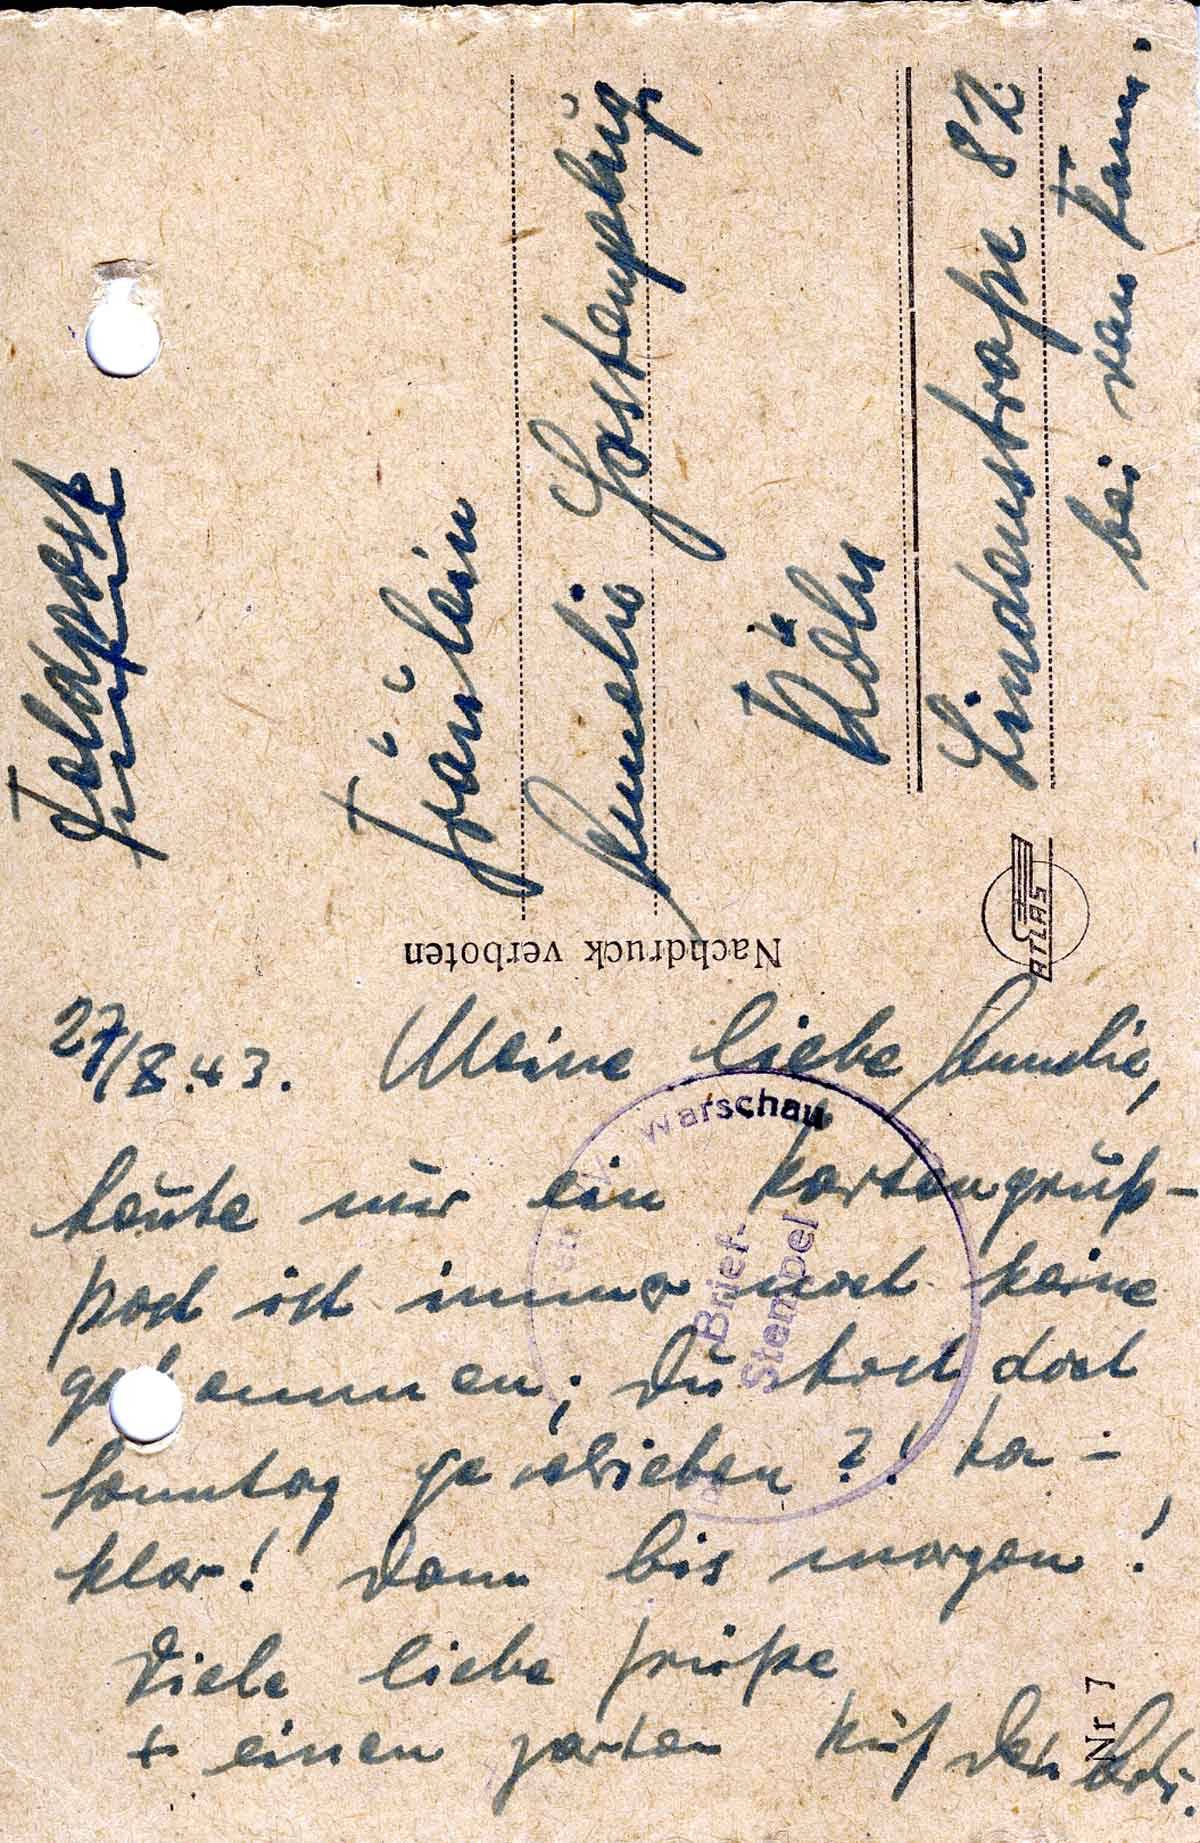 Feldpost
Fräulein
Annelie Hastenplug
Köln
Lindenstraße 82
bei van Kam.
Nachdruck verboten
ATLAS
27/8.43. Meine liebe Annelie,
heute nur ein Kartengruß-
Post ist immer noch keine
gekommen; Du hast doch
Sonntag geschrieben?! Na-
klar! Dann bis morgen!
Viele liebe Grüße
+ einen zarten Kuß Dein
Warschau
Brief-
Stempel
Nr 7